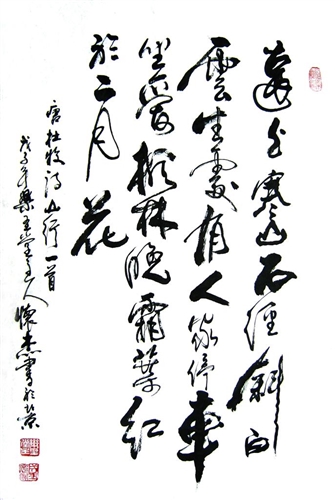 遠上寒山石徑斜白
雲生處有人家停車
坐愛楓林晚霜葉紅
於二月花
唐杜牧詩山行一首
戊子年樂堂主人懷杰書於